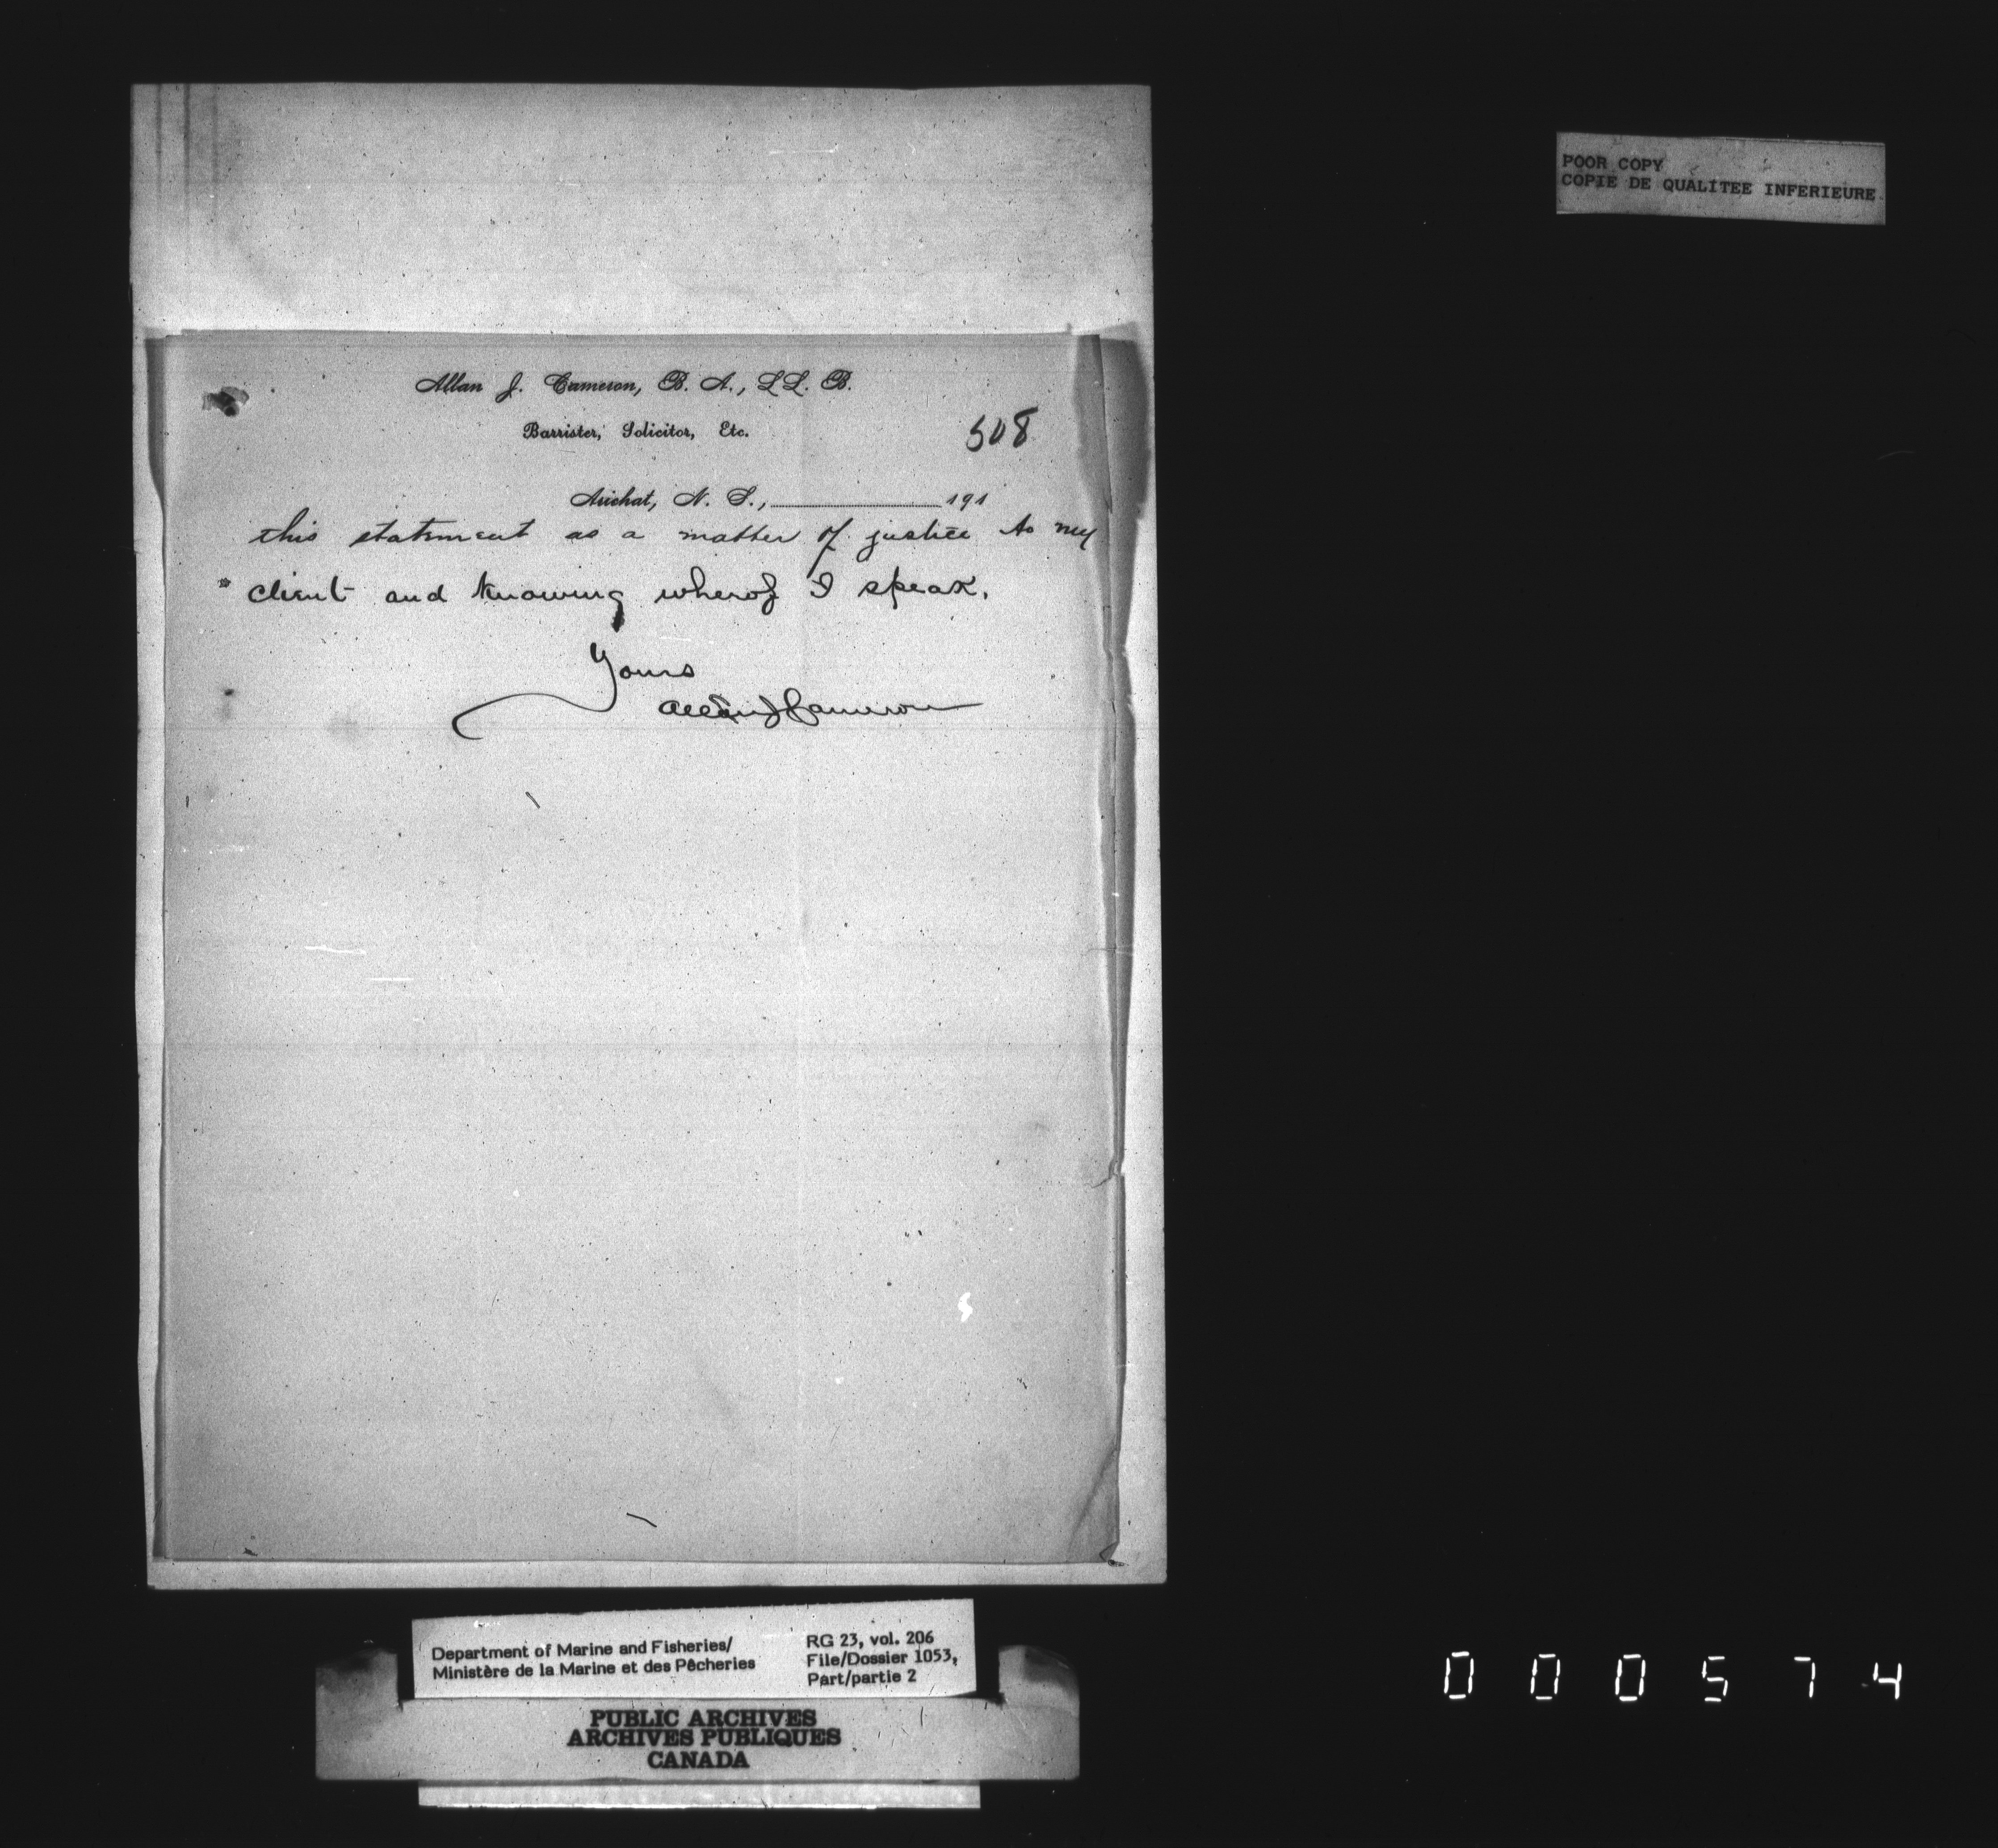 POOR COPY
COPIE DE QUALITEE INFERIEURE
Allan J. Cameron, B. A., LL. B.
Barrister, Solicitor, Etc.
508
Arichat, N. S., 191
this statement as a matter of justice to my
client and knowing wherof I speak.
Yours
Allan J Cameron
Department of Marine and Fisheries/
Ministère de la Marine et des Pêcheries
RG 23, vol. 206
File/Dossier 1053,
Part/partie 2
PUBLIC ARCHIVES
ARCHIVES PUBLIQUES
CANADA
000574